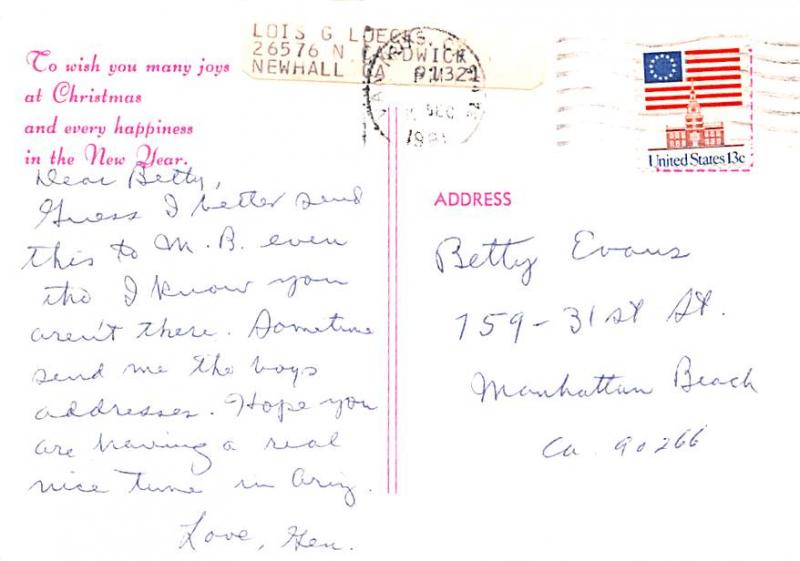 LOIS G LUECKS,
26576 N CARDWICK
NEWHALL CA 91321
DEC
To wish you many joys
at Christmas
and every happiness
in the New Year.
United States 13c
Dear Betty,
Guess I better send
this to M. B. even
tho I know you
aren't there. Sometime
send me the boys
addresses. Hope you
are having a real
nice time in Ariz.
Love, Gen.
ADDRESS
Betty Evans
759-31st St.
Manhattan Beach
Ca. 90266